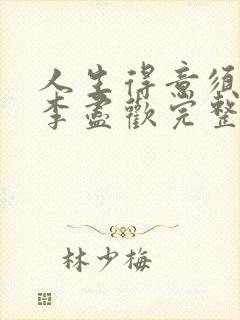 人生得意須
李盡歡完整
林少梅